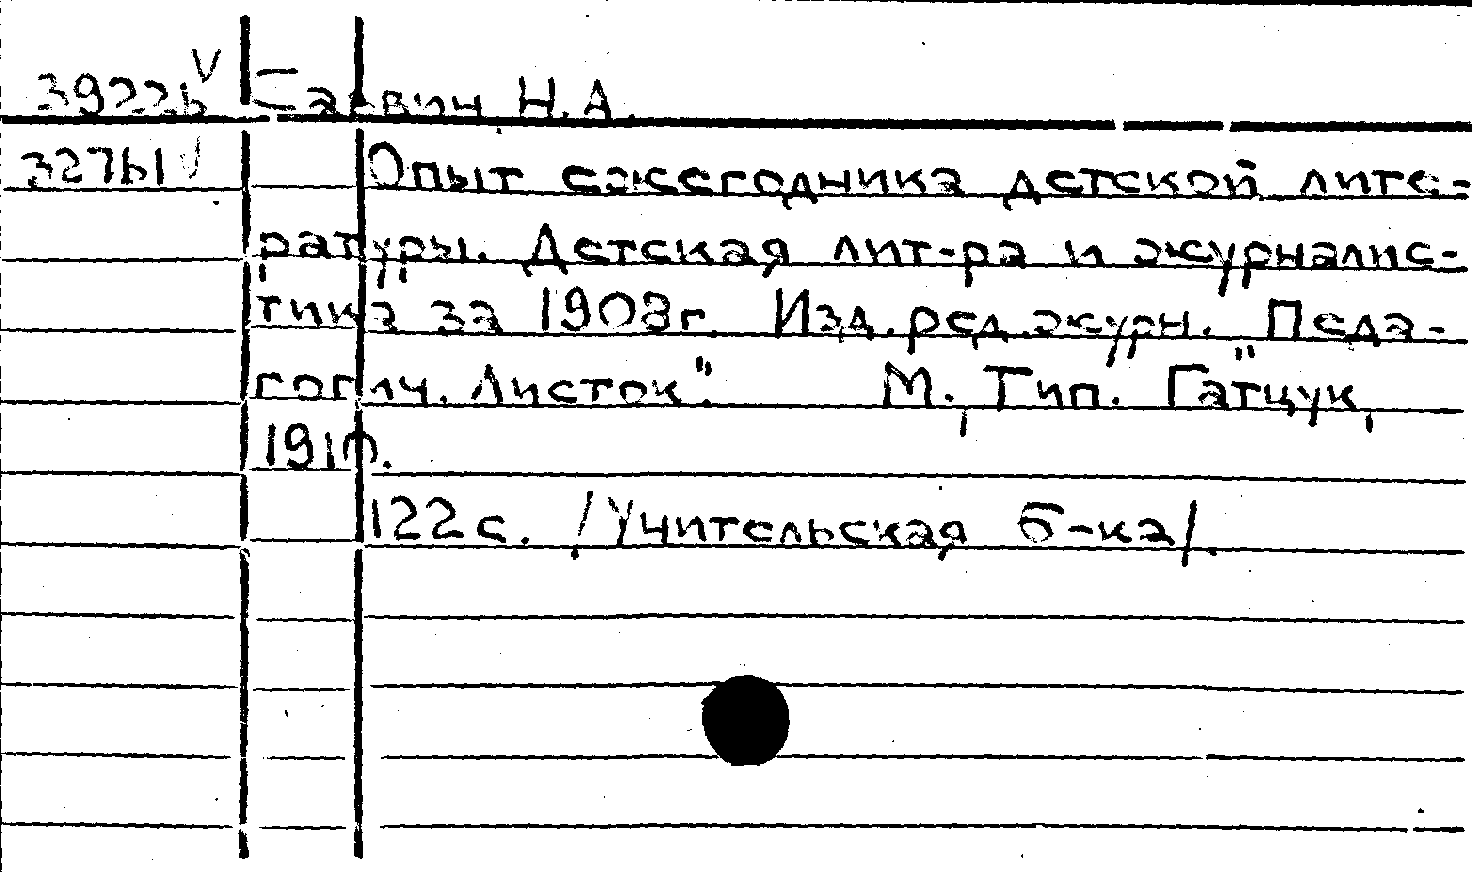 39226 V Саввин Н.А.
32761 V Опыт ежегодника детской лите-
ратуры. Детская лит-ра и журналис-
тика за 1908г. Изд. ред. журн. "Педа-
гогич. Листок". М., Тип. Гатцук,
1910.
122 с. /Учительская б-ка/.